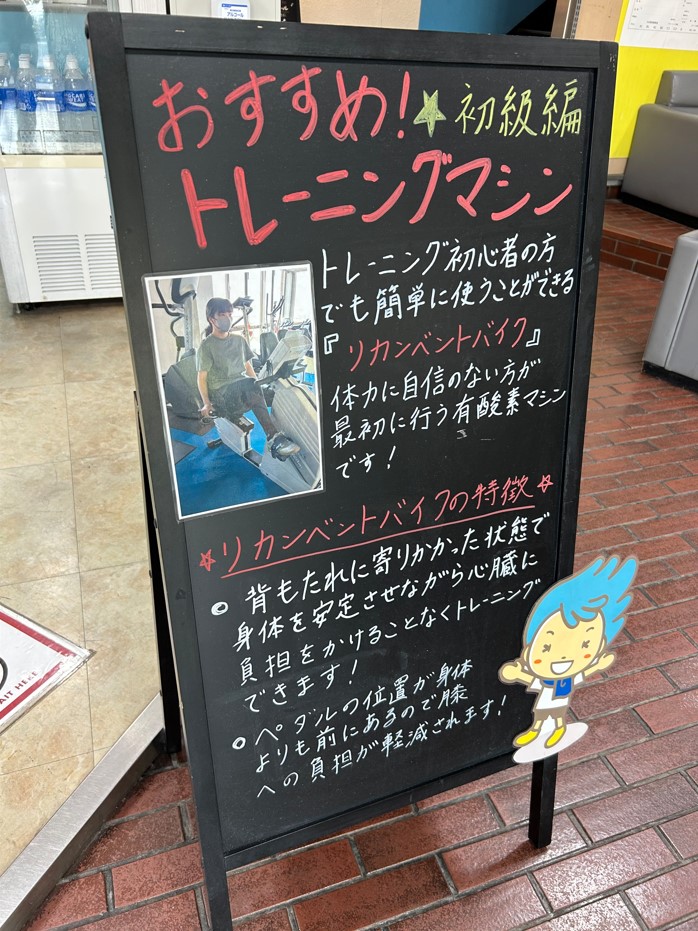 アルコール
おすすめ!☆初級編
トレーニングマシン
トレーニング初心者の方
でも簡単に使うことができる
『リカンベントバイク』
体力に自信のない方が
最初に行う有酸素マシン
です!
☆リカンベントバイクの特徴☆
◎ 背もたれに寄りかかった状態で
身体を安定させながら心臓に
負担をかけることなくトレーニング
できます!
◎ ペダルの位置が身体
よりも前にあるので膝
への負担が軽減されます!
WAIT HERE